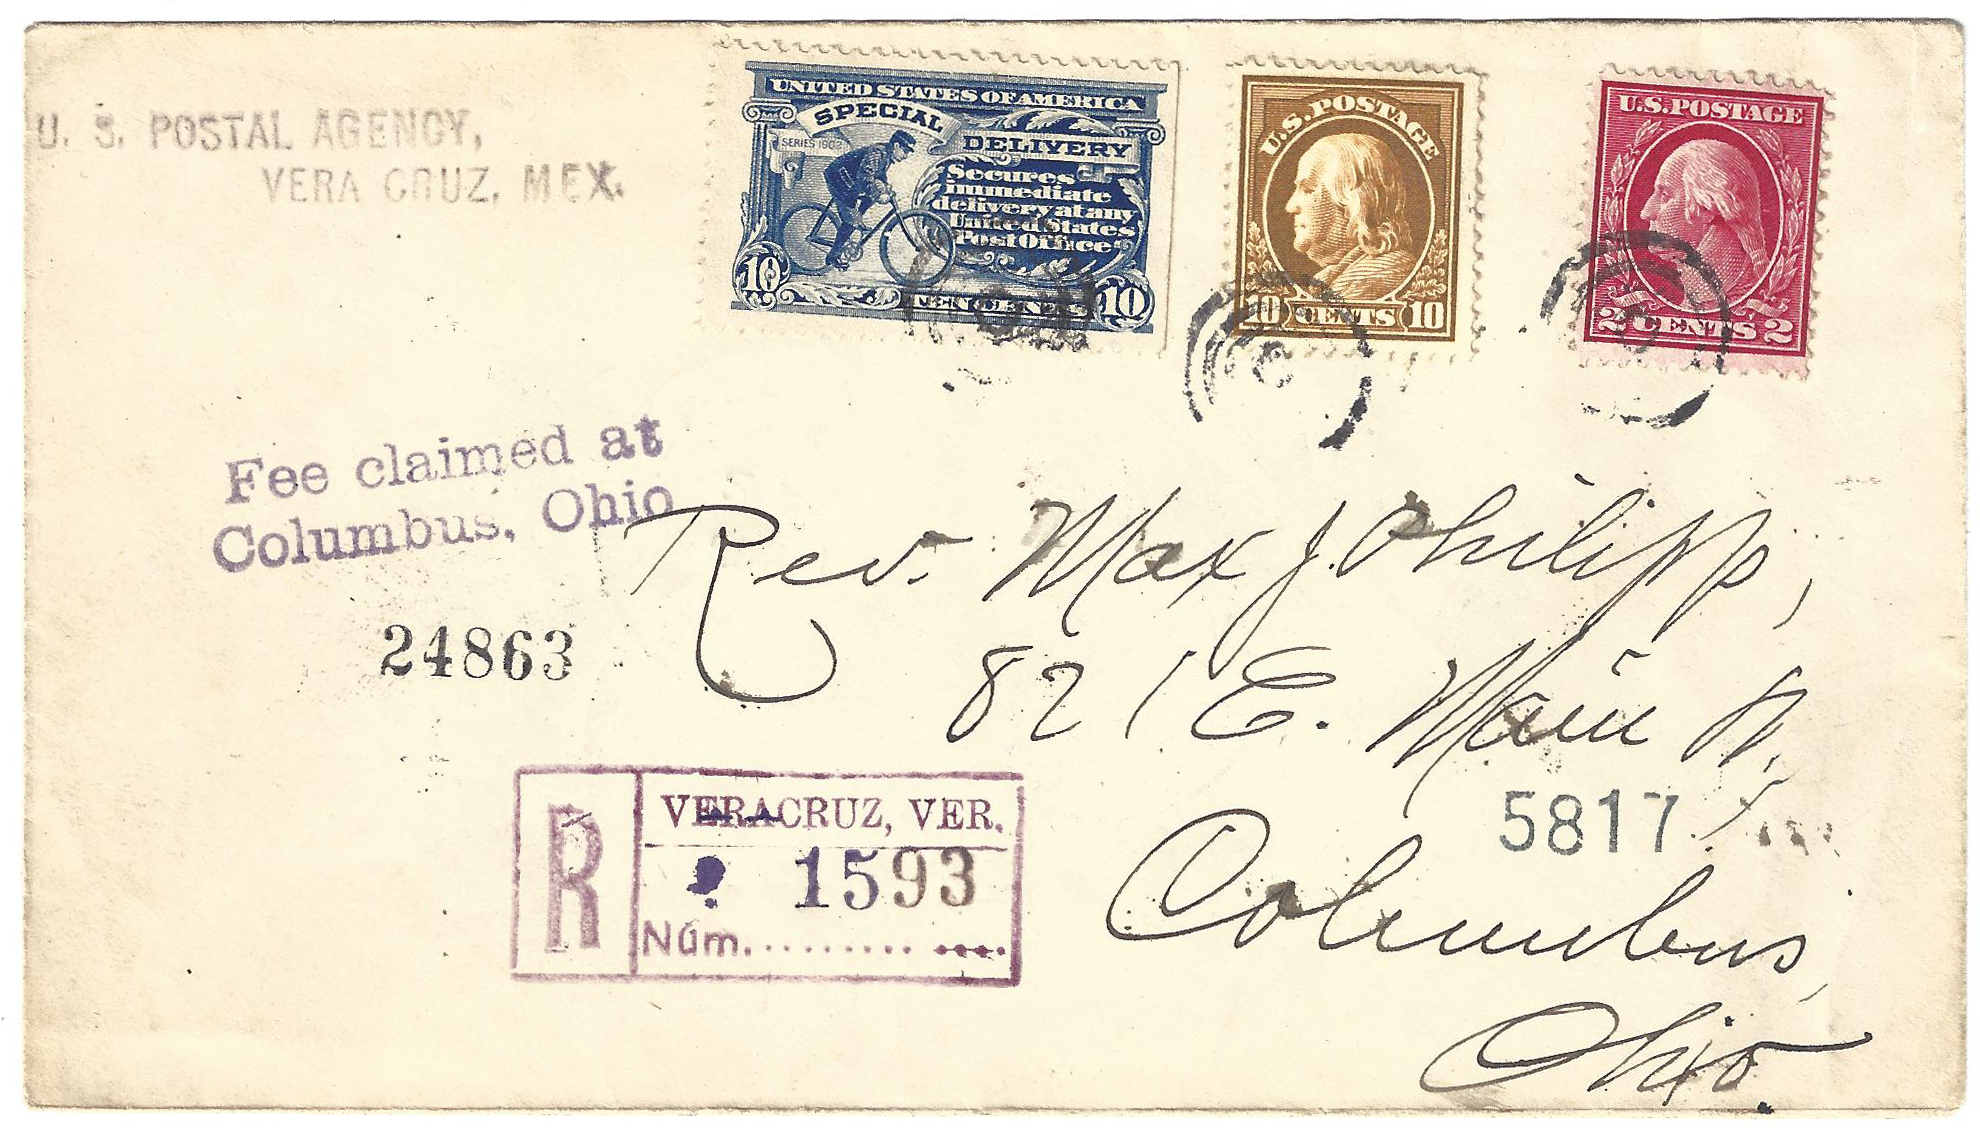 U. S. POSTAL AGENCY,
VERA CRUZ, MEX.
UNITED STATES OF AMERICA
SPECIAL
DELIVERY
SERIES 1902
Secures
immediate
delivery at any
United States
Post Office
10 TEN CENTS 10
U.S. POSTAGE
10 CENTS 10
U.S. POSTAGE
2 CENTS 2
Fee claimed at
Columbus, Ohio
24863
Rev. Max J. Philipp,
821 E. Main St.,
5817
Columbus,
Ohio.
R
VERACRUZ, VER.
1593
Núm.